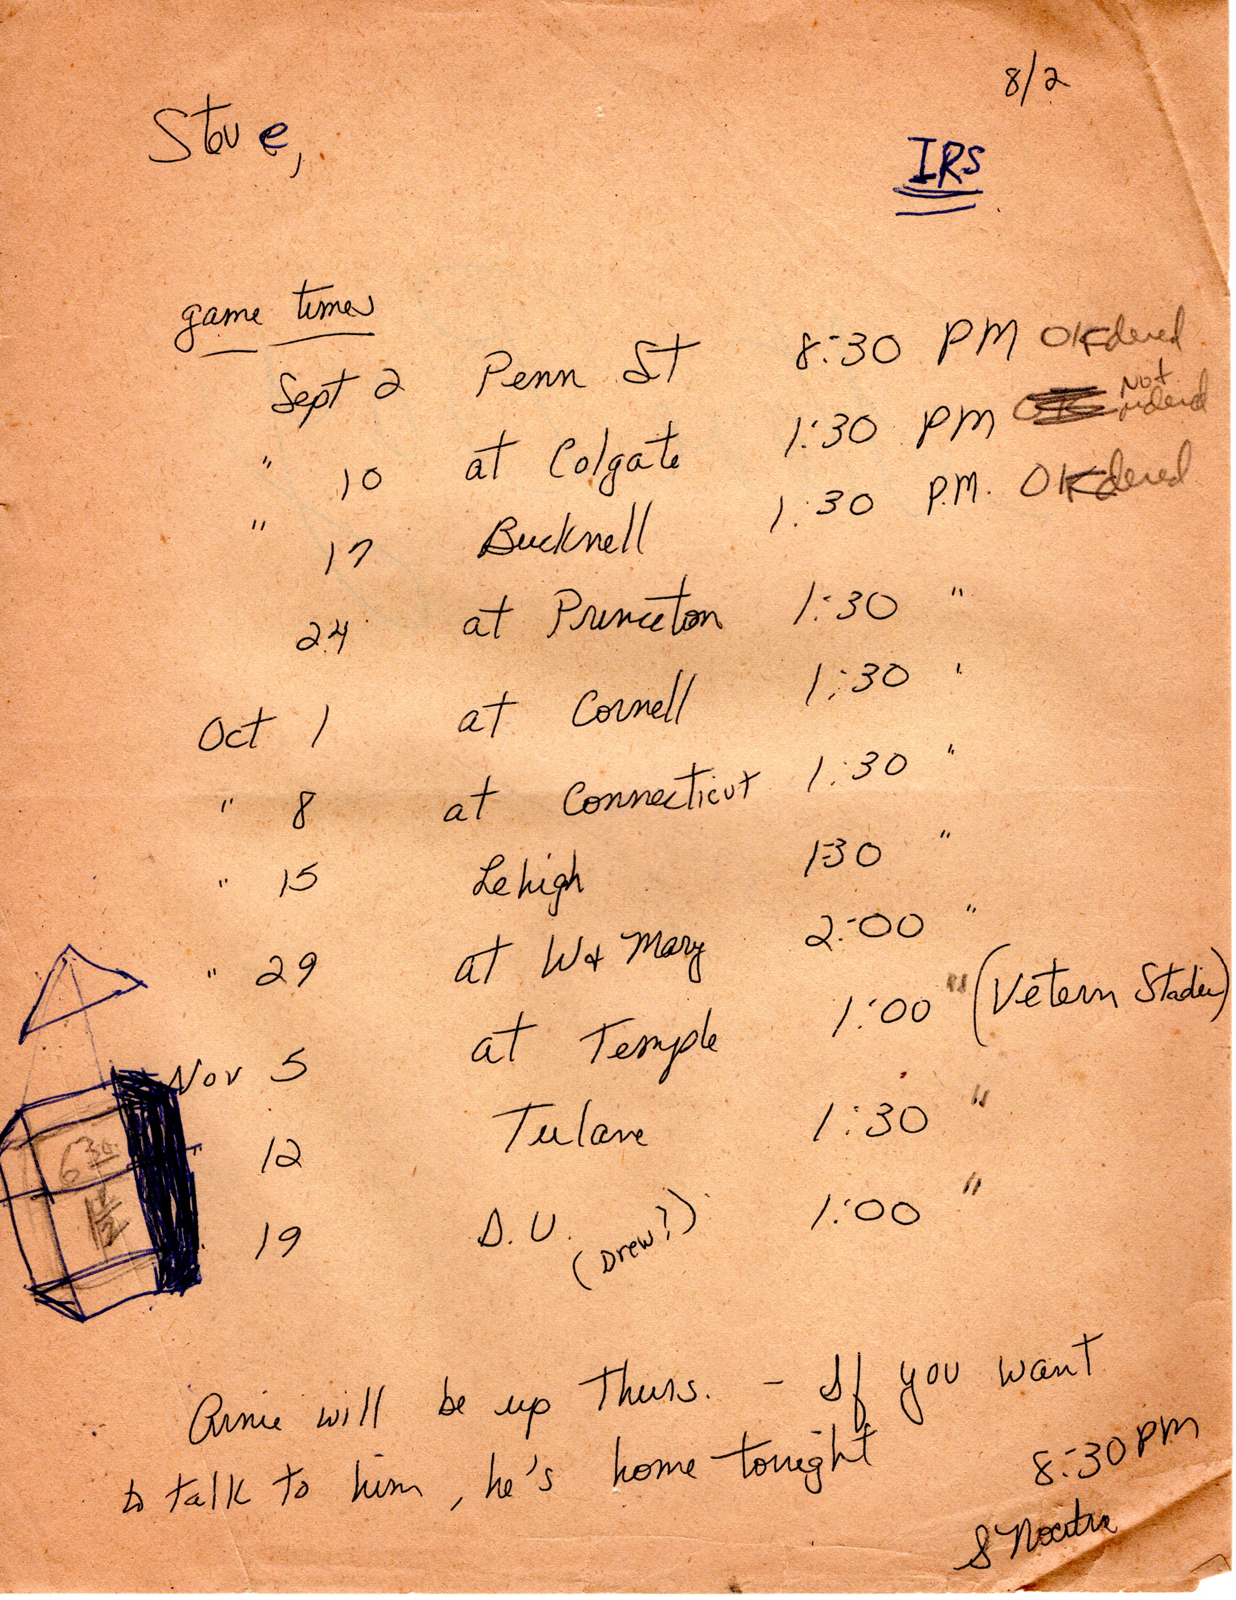 8/2
Steve,
IRS
game times
Sept 2 Penn St 8:30 PM OK Ordered
" 10 at Colgate 1:30 PM OK Not ordered
" 17 Bucknell 1:30 P.M. OK Ordered
24 at Princeton 1:30 "
Oct 1 at Cornell 1:30 "
" 8 at Connecticut 1:30 "
" 15 Lehigh 1:30 "
" 29 at W & Mary 2:00 "
Nov 5 at Temple 1:00 " (Vetern Stadiu)
12 Tulane 1:30 "
19 D.U. (Drew?) 1:00 "
6 30
Arnie will be up Thurs. - If you want
to talk to him, he's home tonight
8:30 PM